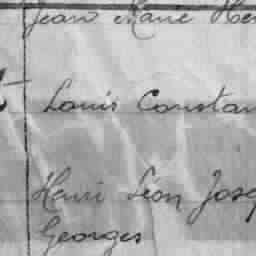 Jean Marie He
t Louis Constan
Henri Léon Jose
Georges